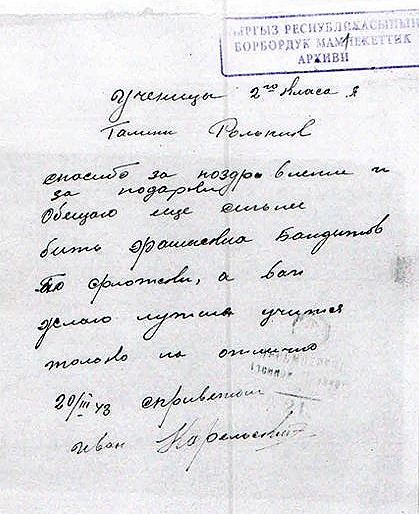 КЫРГЫЗ РЕСПУБЛИКАСЫНЫН
БОРБОРДУК МАМЛЕКЕТТИК
АРХИВИ
ученицы 2го класа я
Галини
спасибо за поздравлени и
за подарки
Обещаю еще сильне
бить Бандитов
по фрошски, а вам
желаю лутьше учится
только на отлично
20/III 43 сприветом
Иван Карельский